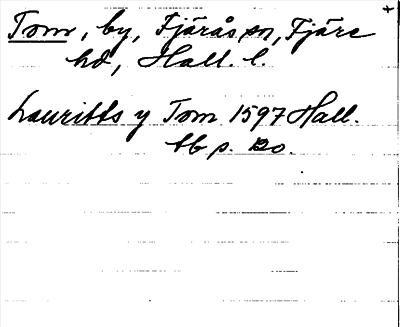 Tom, by, Fjärås sn, Fjäre
hd, Hall. l.
Lauritts y Tom 1597 Hall.
tb p. 20.